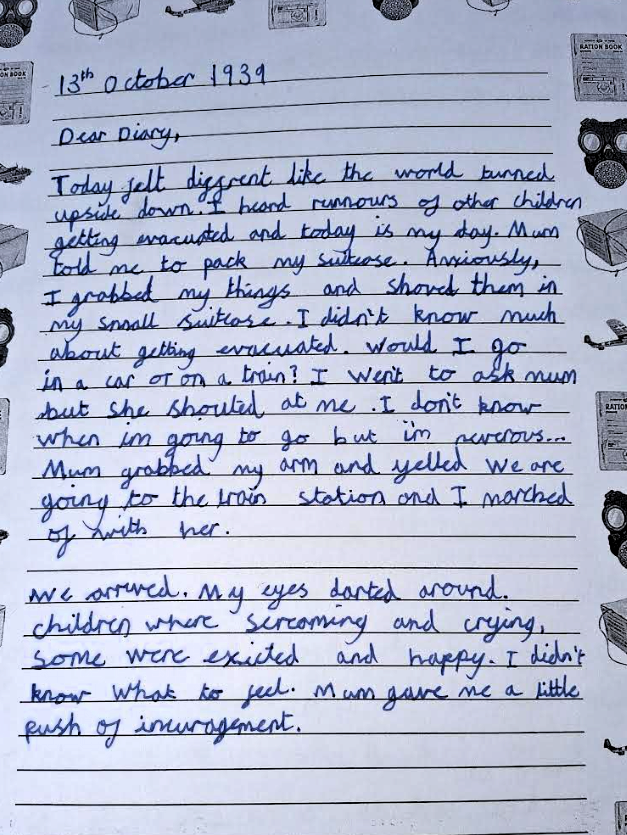 RATION BOOK
13th October 1939
Dear Diary,
Today felt diffrent like the world turned
upside down. I heard rumours of other children
getting evacuated and today is my day. Mum
told me to pack my suitcase. Anxiously,
I grabbed my things and shoved them in
my small suitcase. I didn't know much
about getting evacuated. Would I go
in a car or on a train? I went to ask mum
but she shouted at me. I don't know
when im going to go but i'm neverous...
Mum grabbed my arm and yelled we are
going to the train station and I marched
of with her.
We arrived. My eyes darted around.
children where screaming and crying,
some were exicted and happy. I didn't
know what to feel. Mum gave me a little
push of incuragement.